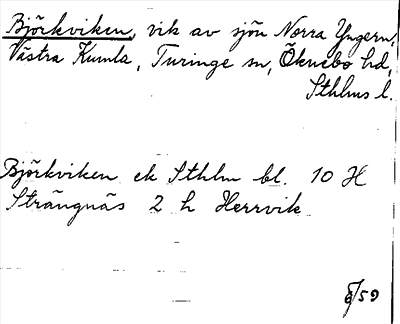 Björkviken, vik av sjön Norra Yngern,
Västra Kumla, Turinge sn, Öknebo hd,
Sthlms l.
Björkviken ek Sthlm bl. 10 H
Strängnäs 2 h Herrvik
/59